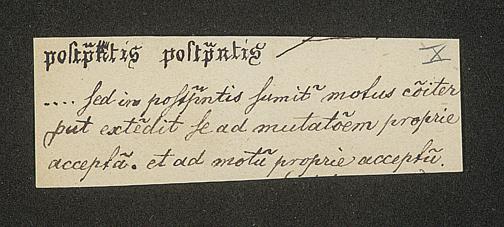 postp̃ntis postp̃ntis X
.... sed in postp̃ntis sumit᷑ motus cõiter
put extẽdit se ad mutatõem proprie
acceptã. et ad motũ proprie acceptũ.